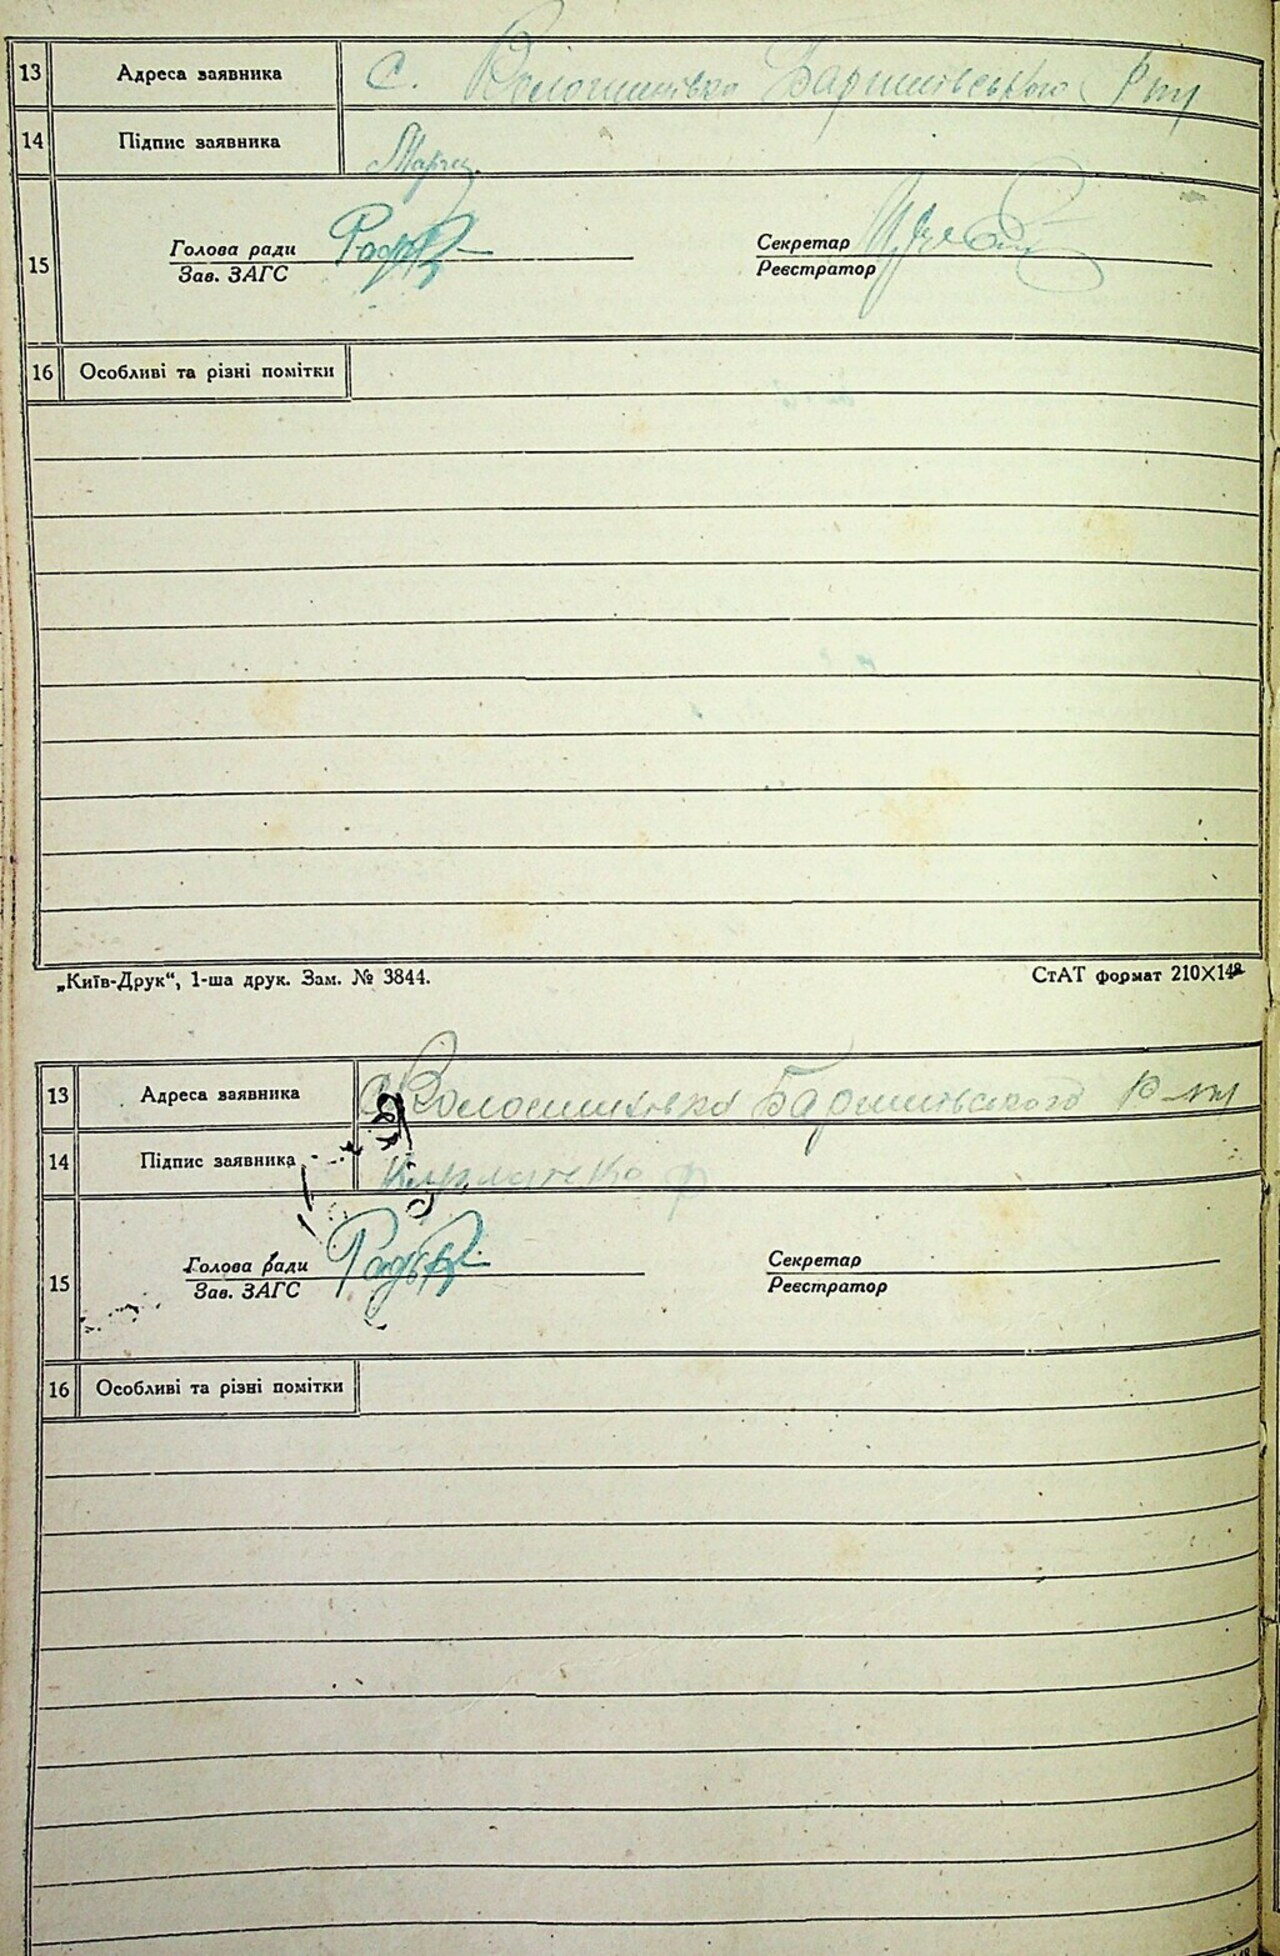 13 Адреса заявника С. Волошинівка Баришівського р-ну
14 Підпис заявника
15 Голова ради Секретар
Зав. ЗАГС Реєстратор
16 Особливі та різні помітки
„Київ-Друк“, 1-ша друк. Зам. № 3844. СтАТ формат 210X148
13 Адреса заявника С. Волошинівка Баришівського р-ну
14 Підпис заявника
15 Голова ради Секретар
Зав. ЗАГС Реєстратор
16 Особливі та різні помітки